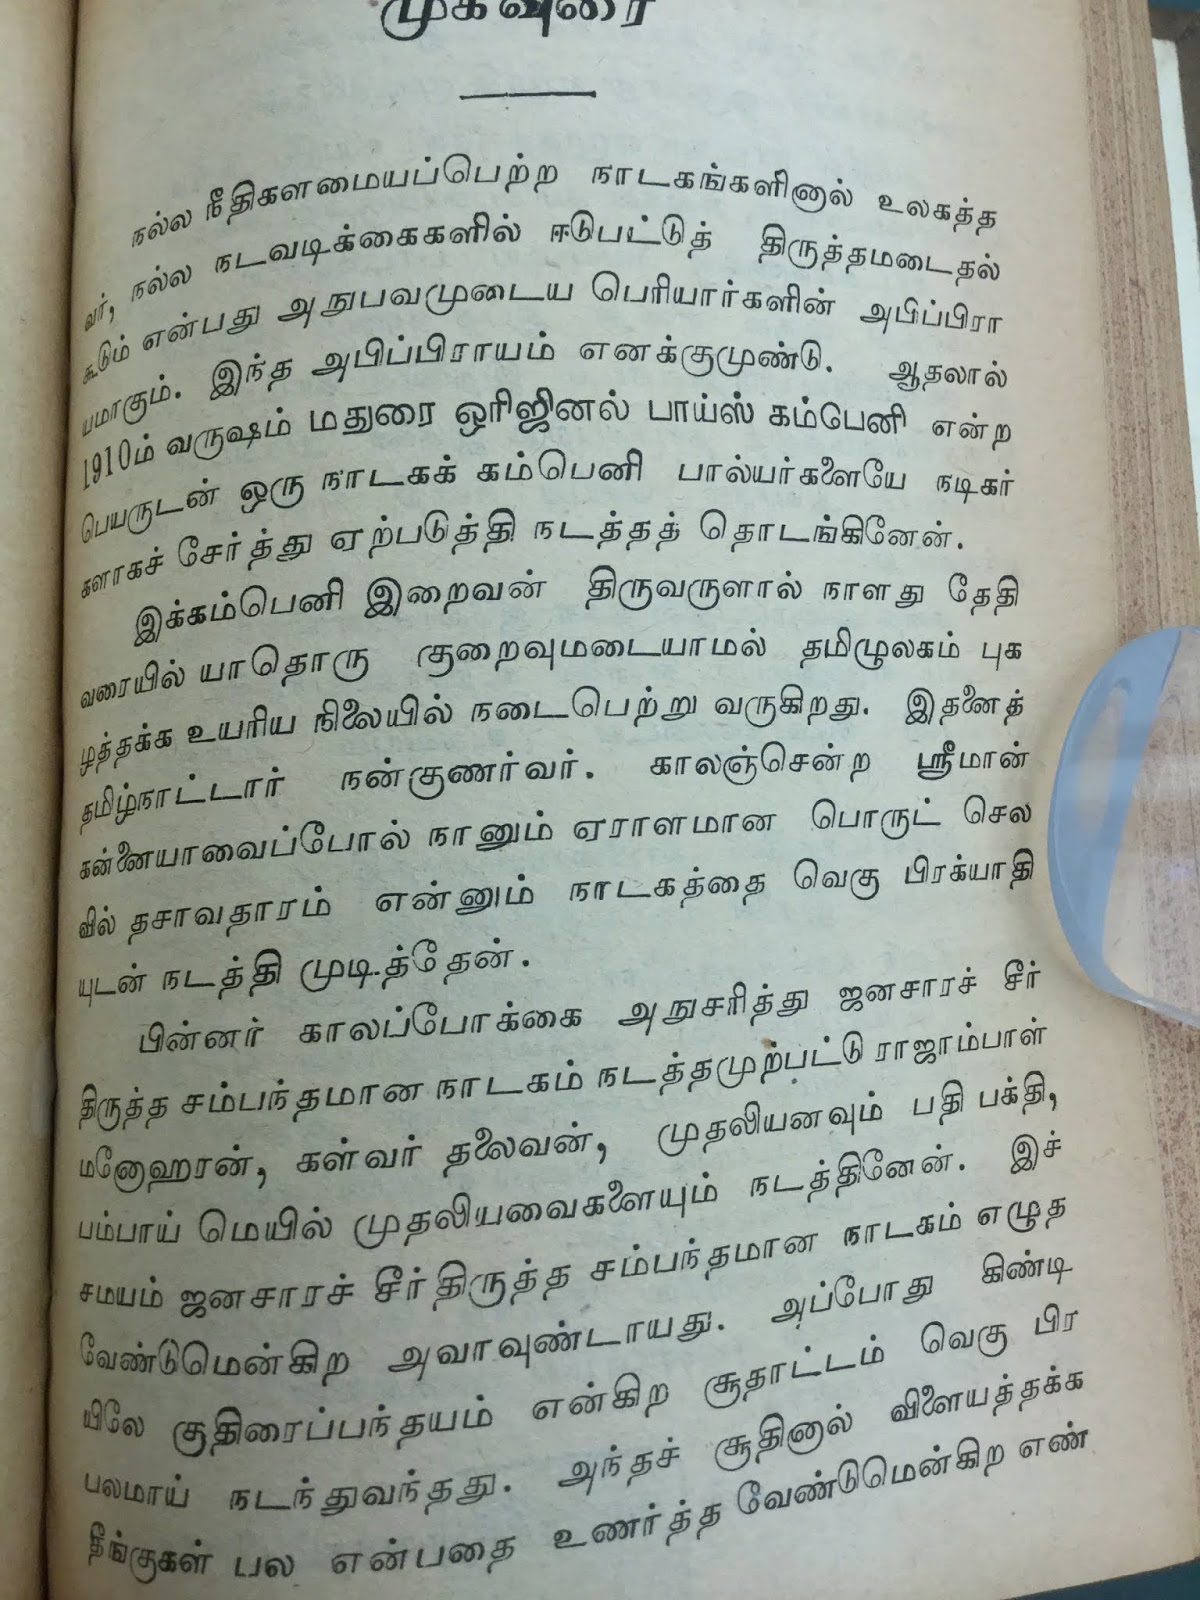 முகவுரை
நல்ல நீதிகளமையப்பெற்ற நாடகங்களினால் உலகத்த
வர், நல்ல நடவடிக்கைகளில் ஈடுபட்டுத் திருத்தமடைதல்
கூடும் என்பது அநுபவமுடைய பெரியார்களின் அபிப்பிரா
யமாகும். இந்த அபிப்பிராயம் எனக்குமுண்டு. ஆதலால்
1910ம் வருஷம் மதுரை ஒரிஜினல் பாய்ஸ் கம்பெனி என்ற
பெயருடன் ஒரு நாடகக் கம்பெனி பால்யர்களையே நடிகர்
களாகச் சேர்த்து ஏற்படுத்தி நடத்தத் தொடங்கினேன்.
இக்கம்பெனி இறைவன் திருவருளால் நாளது தேதி
வரையில் யாதொரு குறைவுமடையாமல் தமிழுலகம் புக
ழத்தக்க உயரிய நிலையில் நடைபெற்று வருகிறது. இதனைத்
தமிழ்நாட்டார் நன்குணர்வர். காலஞ்சென்ற ஸ்ரீமான்
கன்னையாவைப்போல் நானும் ஏராளமான பொருட் செல
வில் தசாவதாரம் என்னும் நாடகத்தை வெகு பிரக்யாதி
யுடன் நடத்தி முடித்தேன்.
பின்னர் காலப்போக்கை அநுசரித்து ஜனசாரச் சீர்
திருத்த சம்பந்தமான நாடகம் நடத்தமுற்பட்டு ராஜாம்பாள்
மனோஹரன், கள்வர் தலைவன், முதலியனவும் பதி பக்தி,
பம்பாய் மெயில் முதலியவைகளையும் நடத்தினேன். இச்
சமயம் ஜனசாரச் சீர்திருத்த சம்பந்தமான நாடகம் எழுத
வேண்டுமென்கிற அவாவுண்டாயது. அப்போது கிண்டி
யிலே குதிரைப்பந்தயம் என்கிற சூதாட்டம் வெகு பிர
பலமாய் நடந்துவந்தது. அந்தச் சூதினால் விளையத்தக்க
தீங்குகள் பல என்பதை உணர்த்த வேண்டுமென்கிற எண்